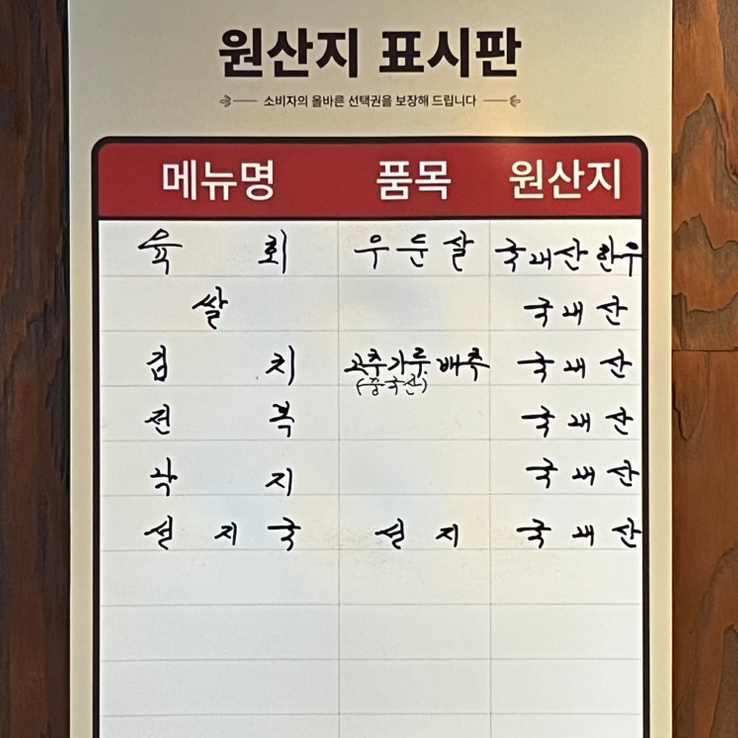 원산지 표시판
소비자의 올바른 선택권을 보장해 드립니다
메뉴명 품목 원산지
육회 우둔살 국내산 한우
쌀 국내산
김치 고추가루, 배추 국내산
(중국산)
전복 국내산
낙지 국내산
선지국 선지 국내산